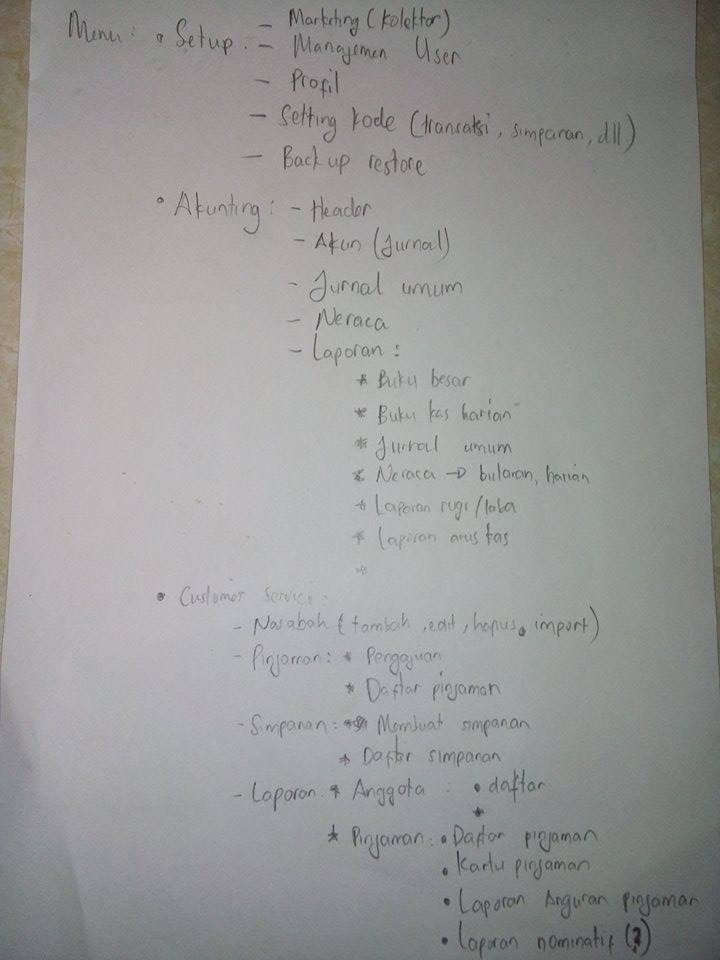 Menu: • Setup. - Marketing (kolektor)
- Manajemen User
- Profil
- Setting kode (transaksi, simpanan, dll)
- Back up restore
• Akunting: - Header
- Akun (Jurnal)
- Jurnal umum
- Neraca
- Laporan:
* Buku besar
* Buku kas harian
* Jurnal umum
* Neraca → bulanan, harian
* Laporan rugi/laba
* Laporan arus kas
*
• Customer Service.
- Nasabah (tambah, edit, hapus, import)
- Pinjaman: * Pengajuan
* Daftar pinjaman
- Simpanan: * Membuat simpanan
* Daftar simpanan
- Laporan: * Anggota : • daftar
•
* Pinjaman: • Daftar pinjaman
• Kartu pinjaman
• Laporan Anguran pinjaman
• Laporan nominatif (?)